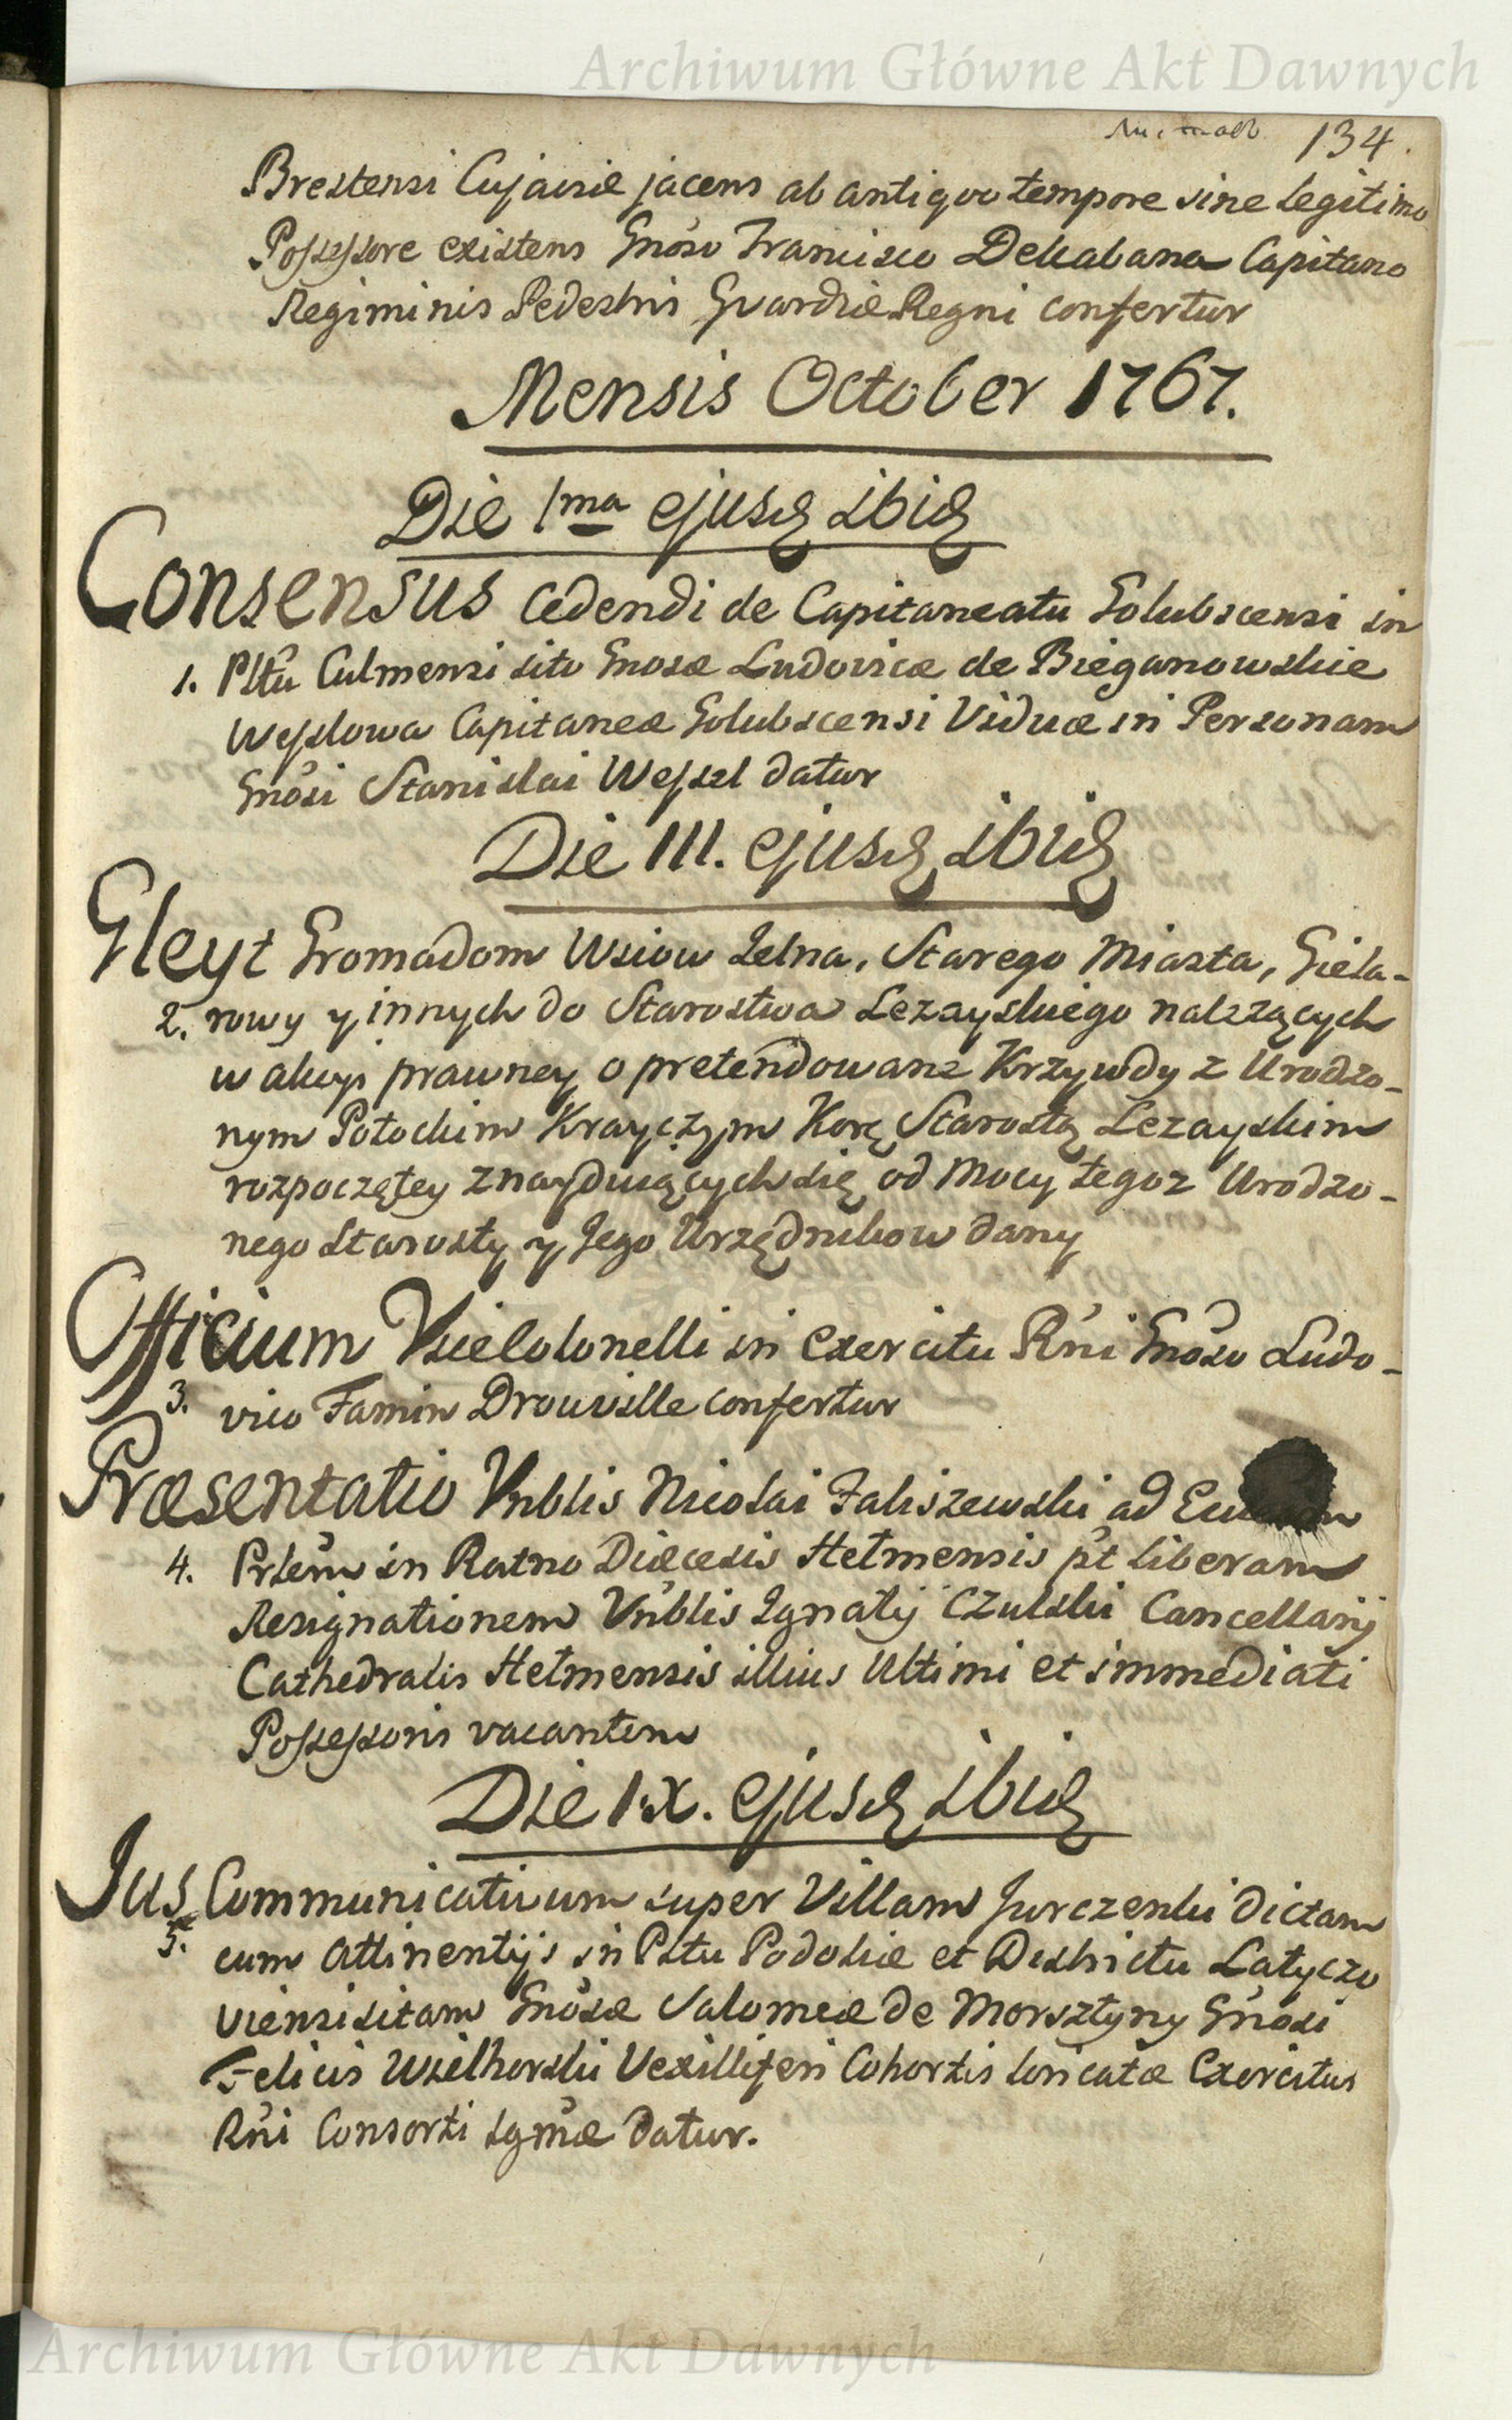 Archiwum Główne Akt Dawnych
134.
Brestensi Cujaviæ jacens ab antiquo tempore sine legitimo
Possessore existens Gnoso Francisco Dekabana Capitano
Regiminis Pedestris Gvardiæ Regni confertur
Mensis October 1767.
Die 1ma ejusd ibid
Consensus Cedendi de Capitaneatu Golubscensi in
1. Pltu Culmensi sito Gnosæ Ludovicæ de Bieganowskie
Wesslowa Capitaneæ Golubscensi Viduæ in Personam
Gnosi Stanislai Wessel datur
Die III. ejusd ibid
Gleyt Gromadom Wsiow Jelna, Starego Miasta, Giela-
2. rowy y innych do Starostwa Lezayskiego nalezących
w akcyi prawney o pretendowane Krzywdy z Urodzo-
nym Potockim Krayczym Kor Starostą Lezayskim
rozpoczętey znayduiących się od Mocy tegoz Urodzo-
nego Starosty y Jego Urzędnikow dany
Officium Vicelolonelli in Exercitu Rni Gnoso Ludo-
3. vico Famin Drouville confertur
Præsentatio Vnblis Nicolai Faliszewski ad
4. Prlem in Ratno Diæcesis Helmensis pt liberam
Resignationem Vnblis Ignatij Czulski Cancellarij
Cathedralis Helmensis illius Ultimi et immediati
Possessoris vacantem
Die IX. ejusd ibid
Jus Communicativum super Villam Jurczenki dictam
5. cum Attinentijs in Pltu Podoliæ et Districtu Latyczo
viensi sitam Gnosæ Salomeæ de Morsztyny Gnosi
Felicis Wielhorski Vexilliferi Cohortis loricatæ Exercitus
Rni Consorti sgmæ datur.
Archiwum Główne Akt Dawnych